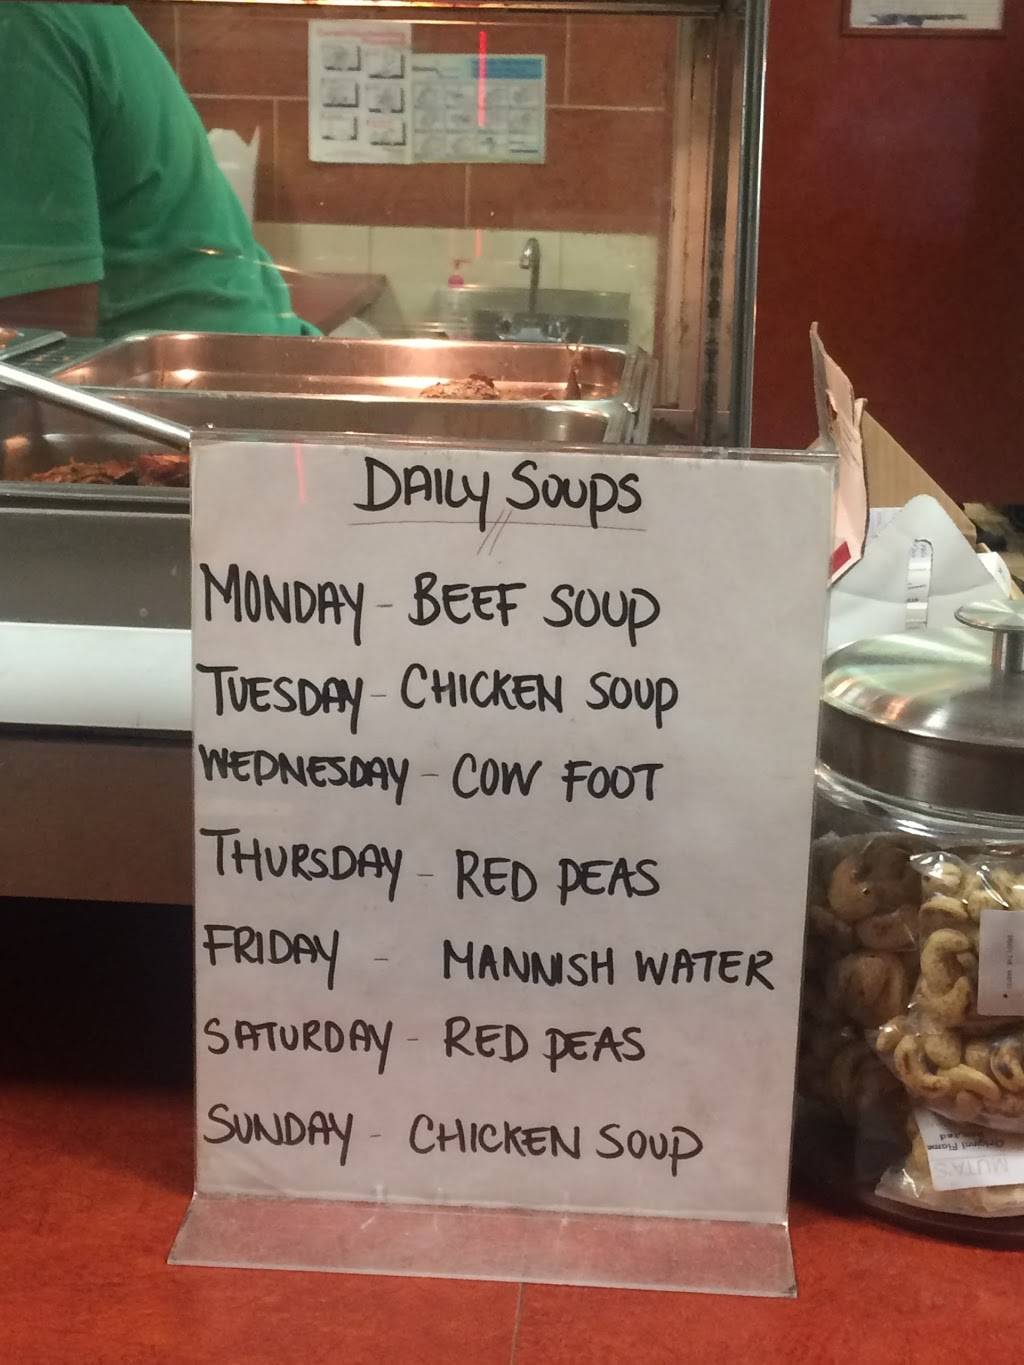 DAILY SOUPS
MONDAY - BEEF SOUP
TUESDAY - CHICKEN SOUP
WEDNESDAY - COW FOOT
THURSDAY - RED PEAS
FRIDAY - MANNISH WATER
SATURDAY - RED PEAS
SUNDAY - CHICKEN SOUP
Original Flame
MUTA'S